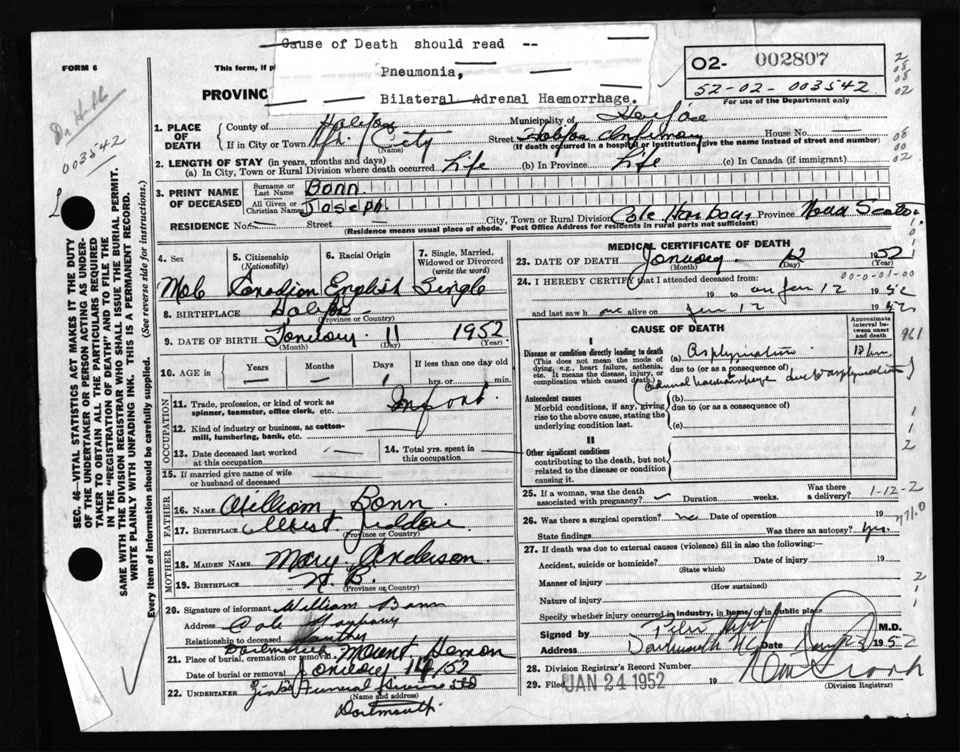 Cause of Death should read --
Pneumonia,
Bilateral Adrenal Haemorrhage.
FORM 6
This form, if p
PROVINC
O2- 002807
52-02-003542
For use of the Department only
Dr Hubb
003542
SEC. 46—VITAL STATISTICS ACT MAKES IT THE DUTY
OF THE UNDERTAKER OR PERSON ACTING AS UNDER-
TAKER TO OBTAIN ALL THE PARTICULARS REQUIRED
IN THE "REGISTRATION OF DEATH" AND TO FILE THE
SAME WITH THE DIVISION REGISTRAR WHO SHALL ISSUE THE BURIAL PERMIT.
WRITE PLAINLY WITH UNFADING INK. THIS IS A PERMANENT RECORD.
Every item of information should be carefully supplied. (See reverse side for instructions.)
1. PLACE OF DEATH
County of Halifax Municipality of Halifax
If in City or Town City (Name) Street Halifax Infirmary House No. —
(If death occurred in a hospital or institution, give the name instead of street and number)
2. LENGTH OF STAY (in years, months and days)
(a) In City, Town or Rural Division where death occurred Life (b) In Province Life (c) In Canada (if immigrant)
3. PRINT NAME OF DECEASED
Surname or Last Name Bonn
All Given or Christian Names Joseph
RESIDENCE No. — Street — City, Town or Rural Division Cole Harbour Province Nova Scotia
(Residence means usual place of abode. Post Office Address for residents in rural parts not sufficient)
4. Sex
5. Citizenship (Nationality)
6. Racial Origin
7. Single, Married, Widowed or Divorced (write the word)
Male Canadian English Single
8. BIRTHPLACE Halifax
(Province or Country)
9. DATE OF BIRTH January 11 1952
(Month) (Day) (Year)
10. AGE in Years — Months — Days 1 If less than one day old hrs. or min.
OCCUPATION
11. Trade, profession, or kind of work as spinner, teamster, office clerk, etc. Infant
12. Kind of industry or business, as cotton-mill, lumbering, bank, etc.
13. Date deceased last worked at this occupation —
14. Total yrs. spent in this occupation —
15. If married give name of wife or husband of deceased
FATHER
16. NAME William Bonn
17. BIRTHPLACE West Jeddore
(Province or Country)
MOTHER
18. MAIDEN NAME Mary Anderson
19. BIRTHPLACE N. B.
(Province or Country)
20. Signature of informant William Bonn
Address Cole Harbour
Relationship to deceased
21. Place of burial, cremation or removal Dartmouth Mount Hermon
Date of burial or removal January 14/52
22. UNDERTAKER Zinks Funeral Service Ltd
(Name and address)
Dartmouth
MEDICAL CERTIFICATE OF DEATH
23. DATE OF DEATH January 12 1952
(Month) (Day)
24. I HEREBY CERTIFY that I attended deceased from:
00-0-01-00
19 to on Jan 12 1952
and last saw h alive on Jan 12 1952
CAUSE OF DEATH
Approximate interval between onset and death
I
Disease or condition directly leading to death
(This does not mean the mode of dying, e.g., heart failure, asthenia, etc. It means the disease, injury, or complication which caused death.)
(a) Asphyxiation
due to (or as a consequence of)
(Adrenal haemorrhage due to asphyxiation)
Antecedent causes
Morbid conditions, if any, giving rise to the above cause, stating the underlying condition last.
(b)
due to (or as a consequence of)
(c)
II
Other significant conditions
contributing to the death, but not related to the disease or condition causing it.
25. If a woman, was the death associated with pregnancy? Duration weeks. Was there a delivery? 1-12-2
26. Was there a surgical operation? no Date of operation 19
State findings Was there an autopsy? yes.
27. If death was due to external causes (violence) fill in also the following:—
Accident, suicide or homicide? Date of injury 19
(State which)
Manner of injury
(How sustained)
Nature of injury
Specify whether injury occurred in industry, in home, or in public place
Signed by M.D.
Address Dartmouth N.S. Date 1952
28. Division Registrar's Record Number
29. Filed JAN 24 1952 19
(Division Registrar)